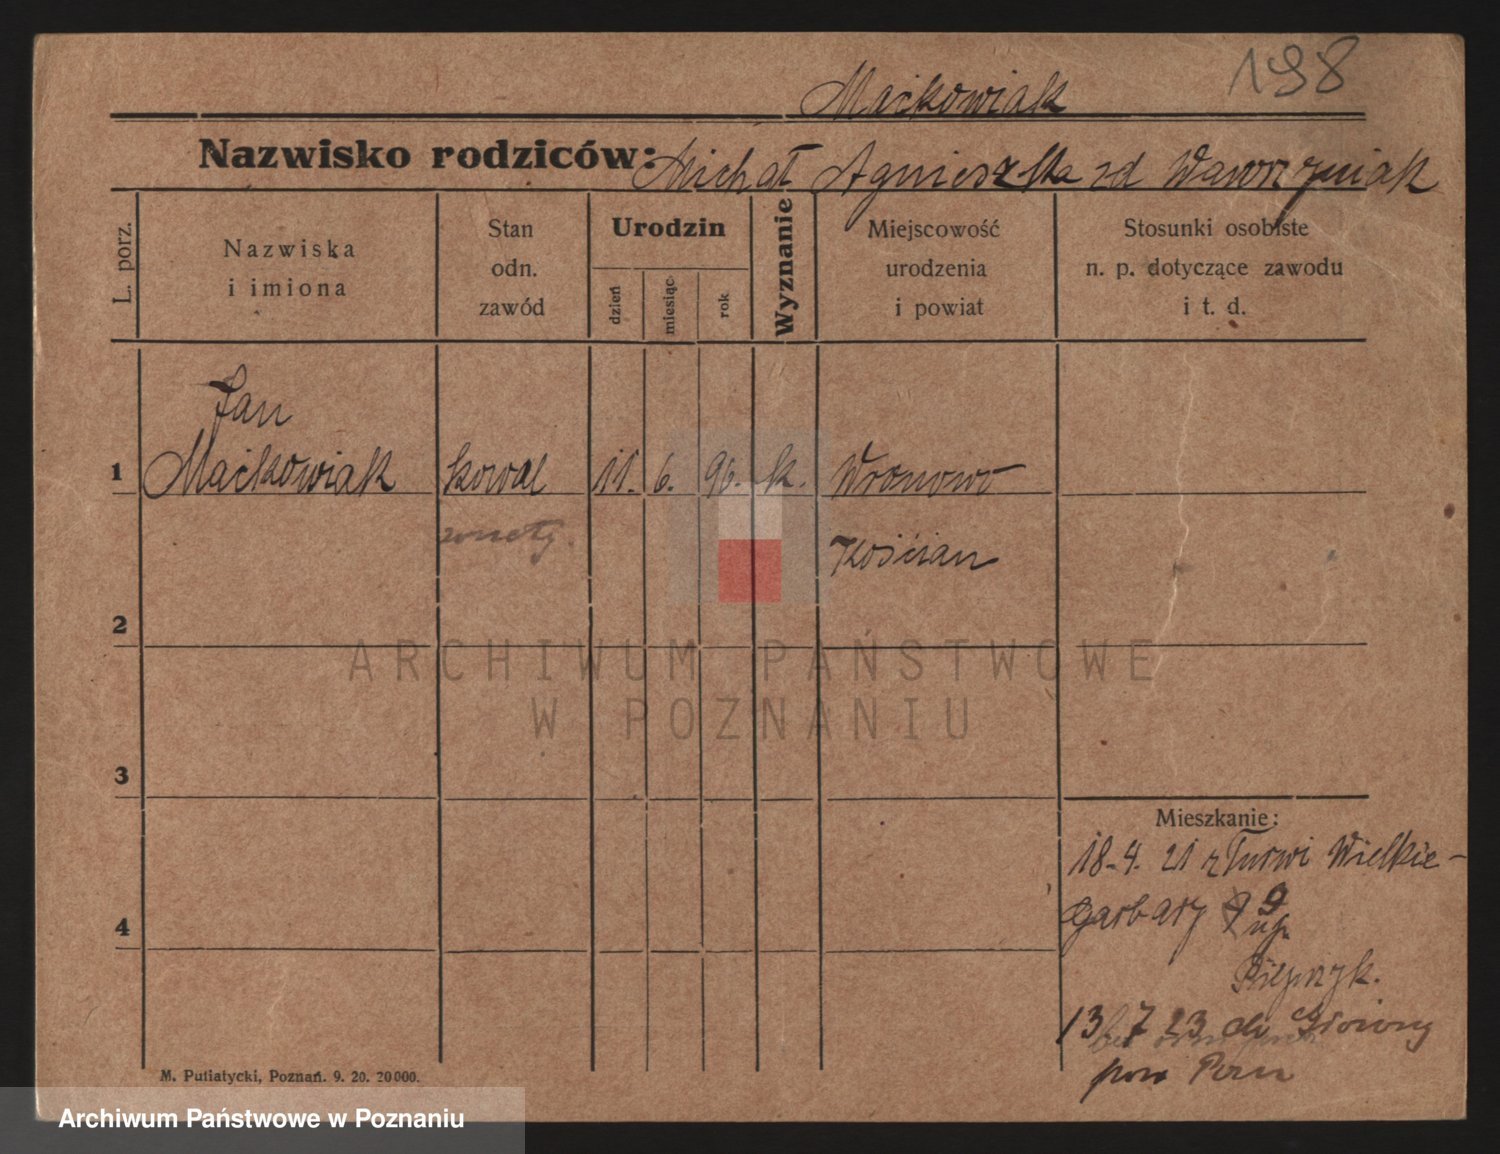 198
Maćkowiak
Nazwisko rodziców: Michał Agnieszka zd Wawrzyniak
L. porz.
Nazwiska
i imiona
Stan
odn.
zawód
Urodzin
dzień
miesiąc
rok
Wyznanie
Miejscowość
urodzenia
i powiat
Stosunki osobiste
n. p. dotyczące zawodu
i t. d.
Jan
1 Maćkowiak kowal 11. 6. 96. k. Wronowo
Kościan
2
3
4
ARCHIWUM PAŃSTWOWE
W POZNANIU
Mieszkanie:
18.4.21 z Turwi Wielkie-
Garbary 9
13 7 23 do
pow Pozn
M. Putiatycki, Poznań. 9. 20. 20000.
Archiwum Państwowe w Poznaniu